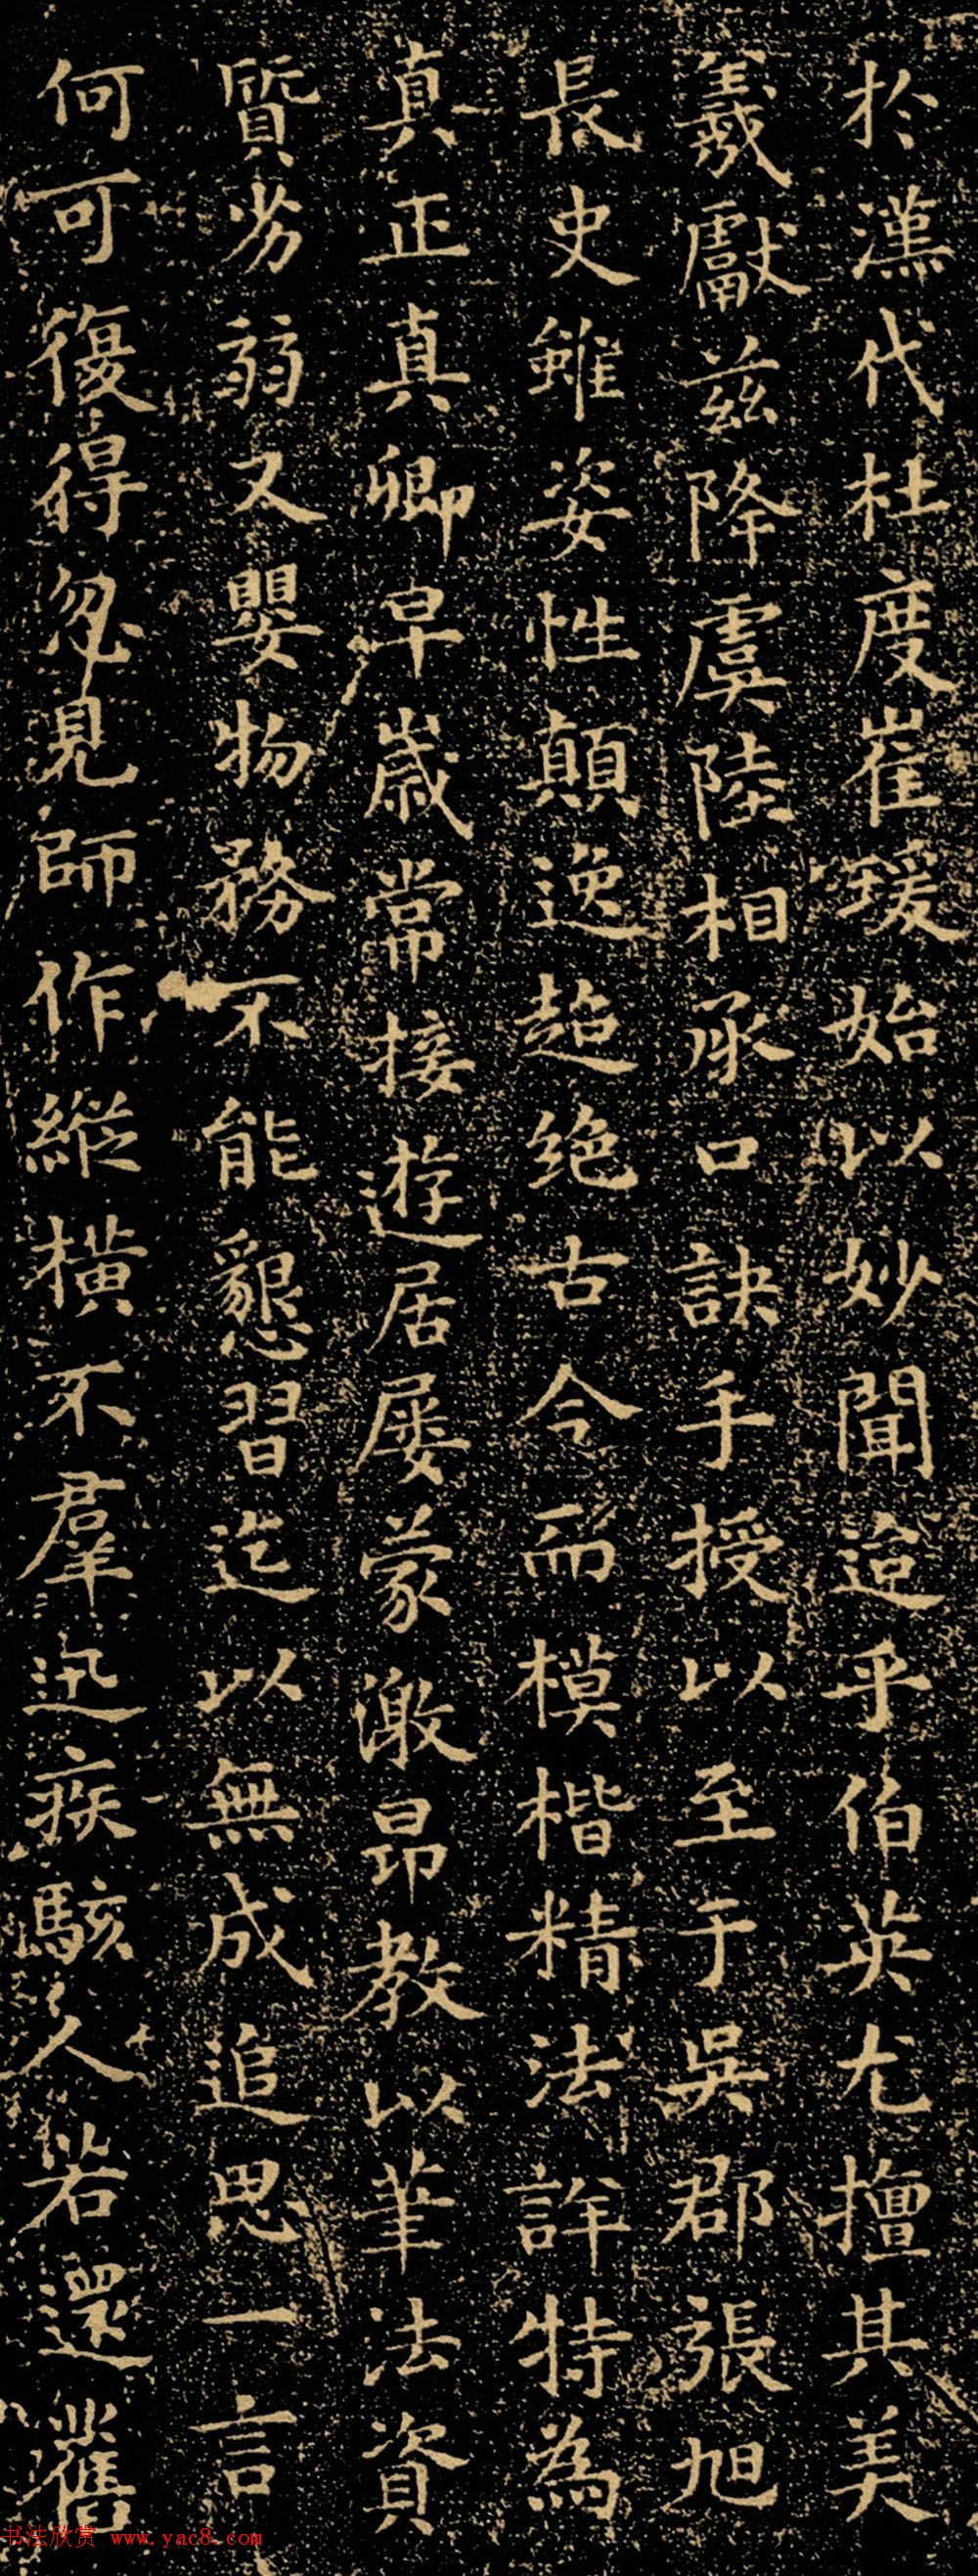 於漢代杜度崔瑗始以妙聞迨乎伯英尤擅其美
羲獻茲降虞陸相承口訣手授以至于吳郡張旭
長史雖姿性顛逸超絕古今而模楷精法詳特為
真正真卿早歲常接遊居屢蒙激昂教以筆法資
質劣弱又嬰物務不能懇習迄以無成追思一言
何可復得忽見師作縱橫不羣迅疾駭人若還舊
书法欣赏 www.yac8.com